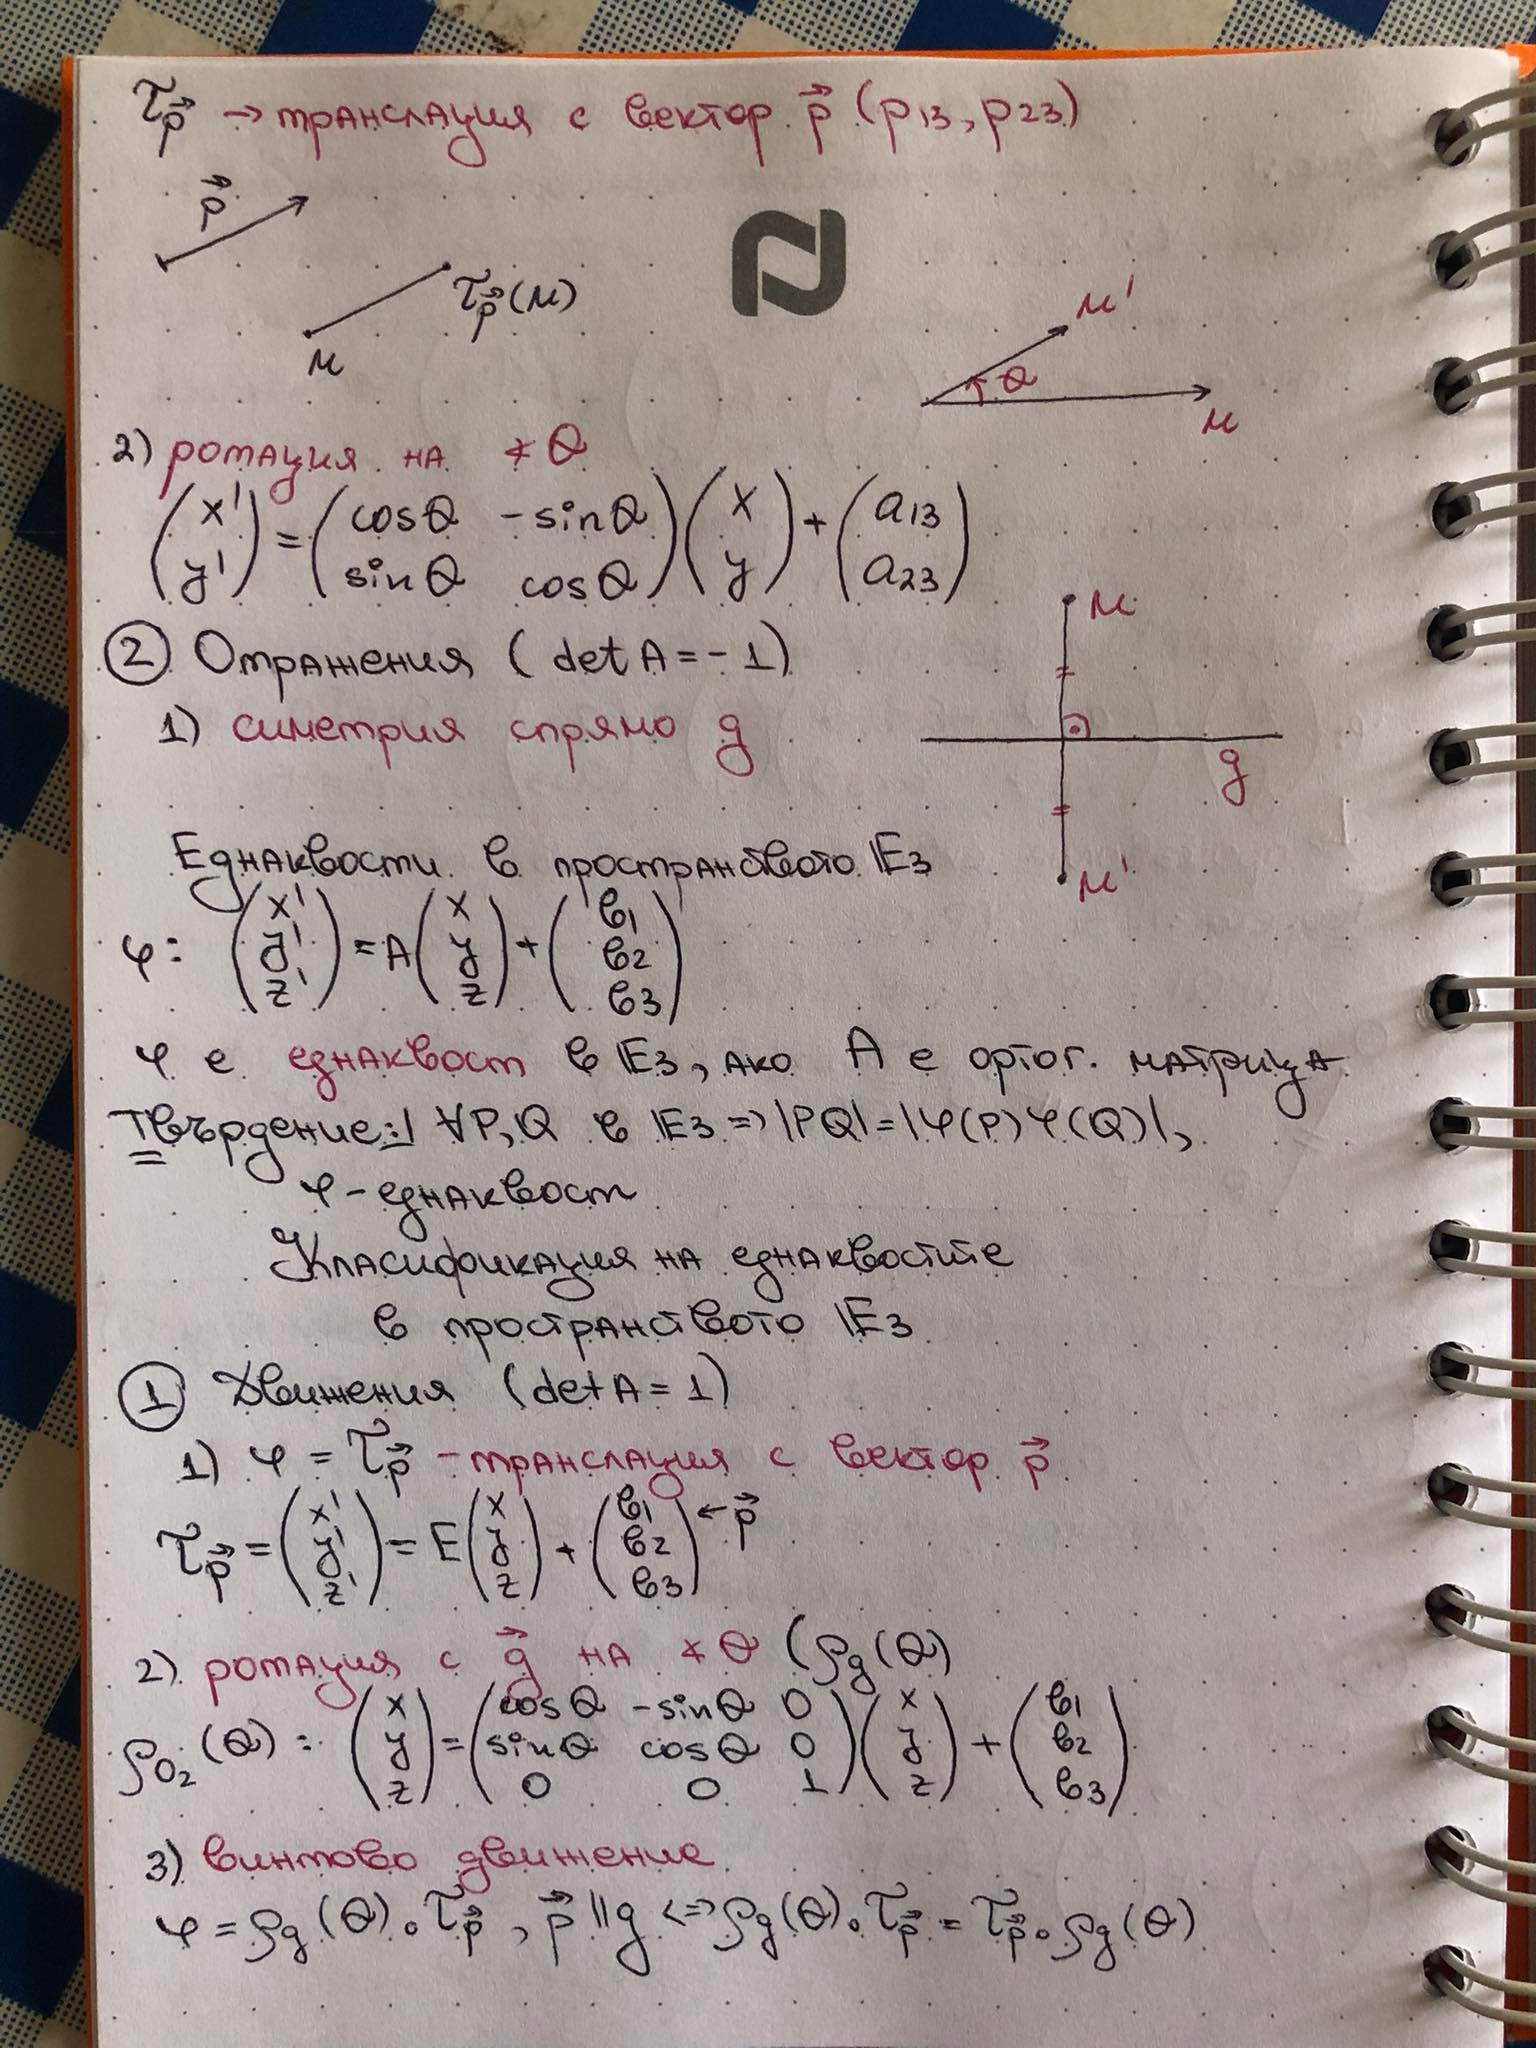 τp⃗ → транслация с вектор p⃗ (p13, p23)
p⃗
τp⃗(M)
M
M'
θ
M
2) ротация на ∡θ
(x' y') = (cosθ -sinθ sinθ cosθ)(x y) + (a13 a23)
M
② Отражения (detA = -1)
1) симетрия спрямо g
g
Еднаквости в пространството E3
M'
φ: (x' y' z') = A(x y z) + (b1 b2 b3)
φ е еднаквост в E3, ако A е ортог. матрица
Твърдение: ∀P,Q в E3 => |PQ| = |φ(P)φ(Q)|,
φ - еднаквост
Класификация на еднаквостите
в пространството E3
① Движения (detA = 1)
1) φ = τp⃗ - транслация с вектор p⃗
τp⃗ = (x' y' z') = E(x y z) + (b1 b2 b3) ← p⃗
2) ротация с g⃗ на ∡θ (ρg(θ)
ρ0z(θ): (x y z) = (cosθ -sinθ 0 sinθ cosθ 0 0 0 1)(x y z) + (b1 b2 b3)
3) винтово движение
φ = ρg(θ)∘τp⃗, p⃗ ∥ g <=> ρg(θ)∘τp⃗ = τp⃗∘ρg(θ)